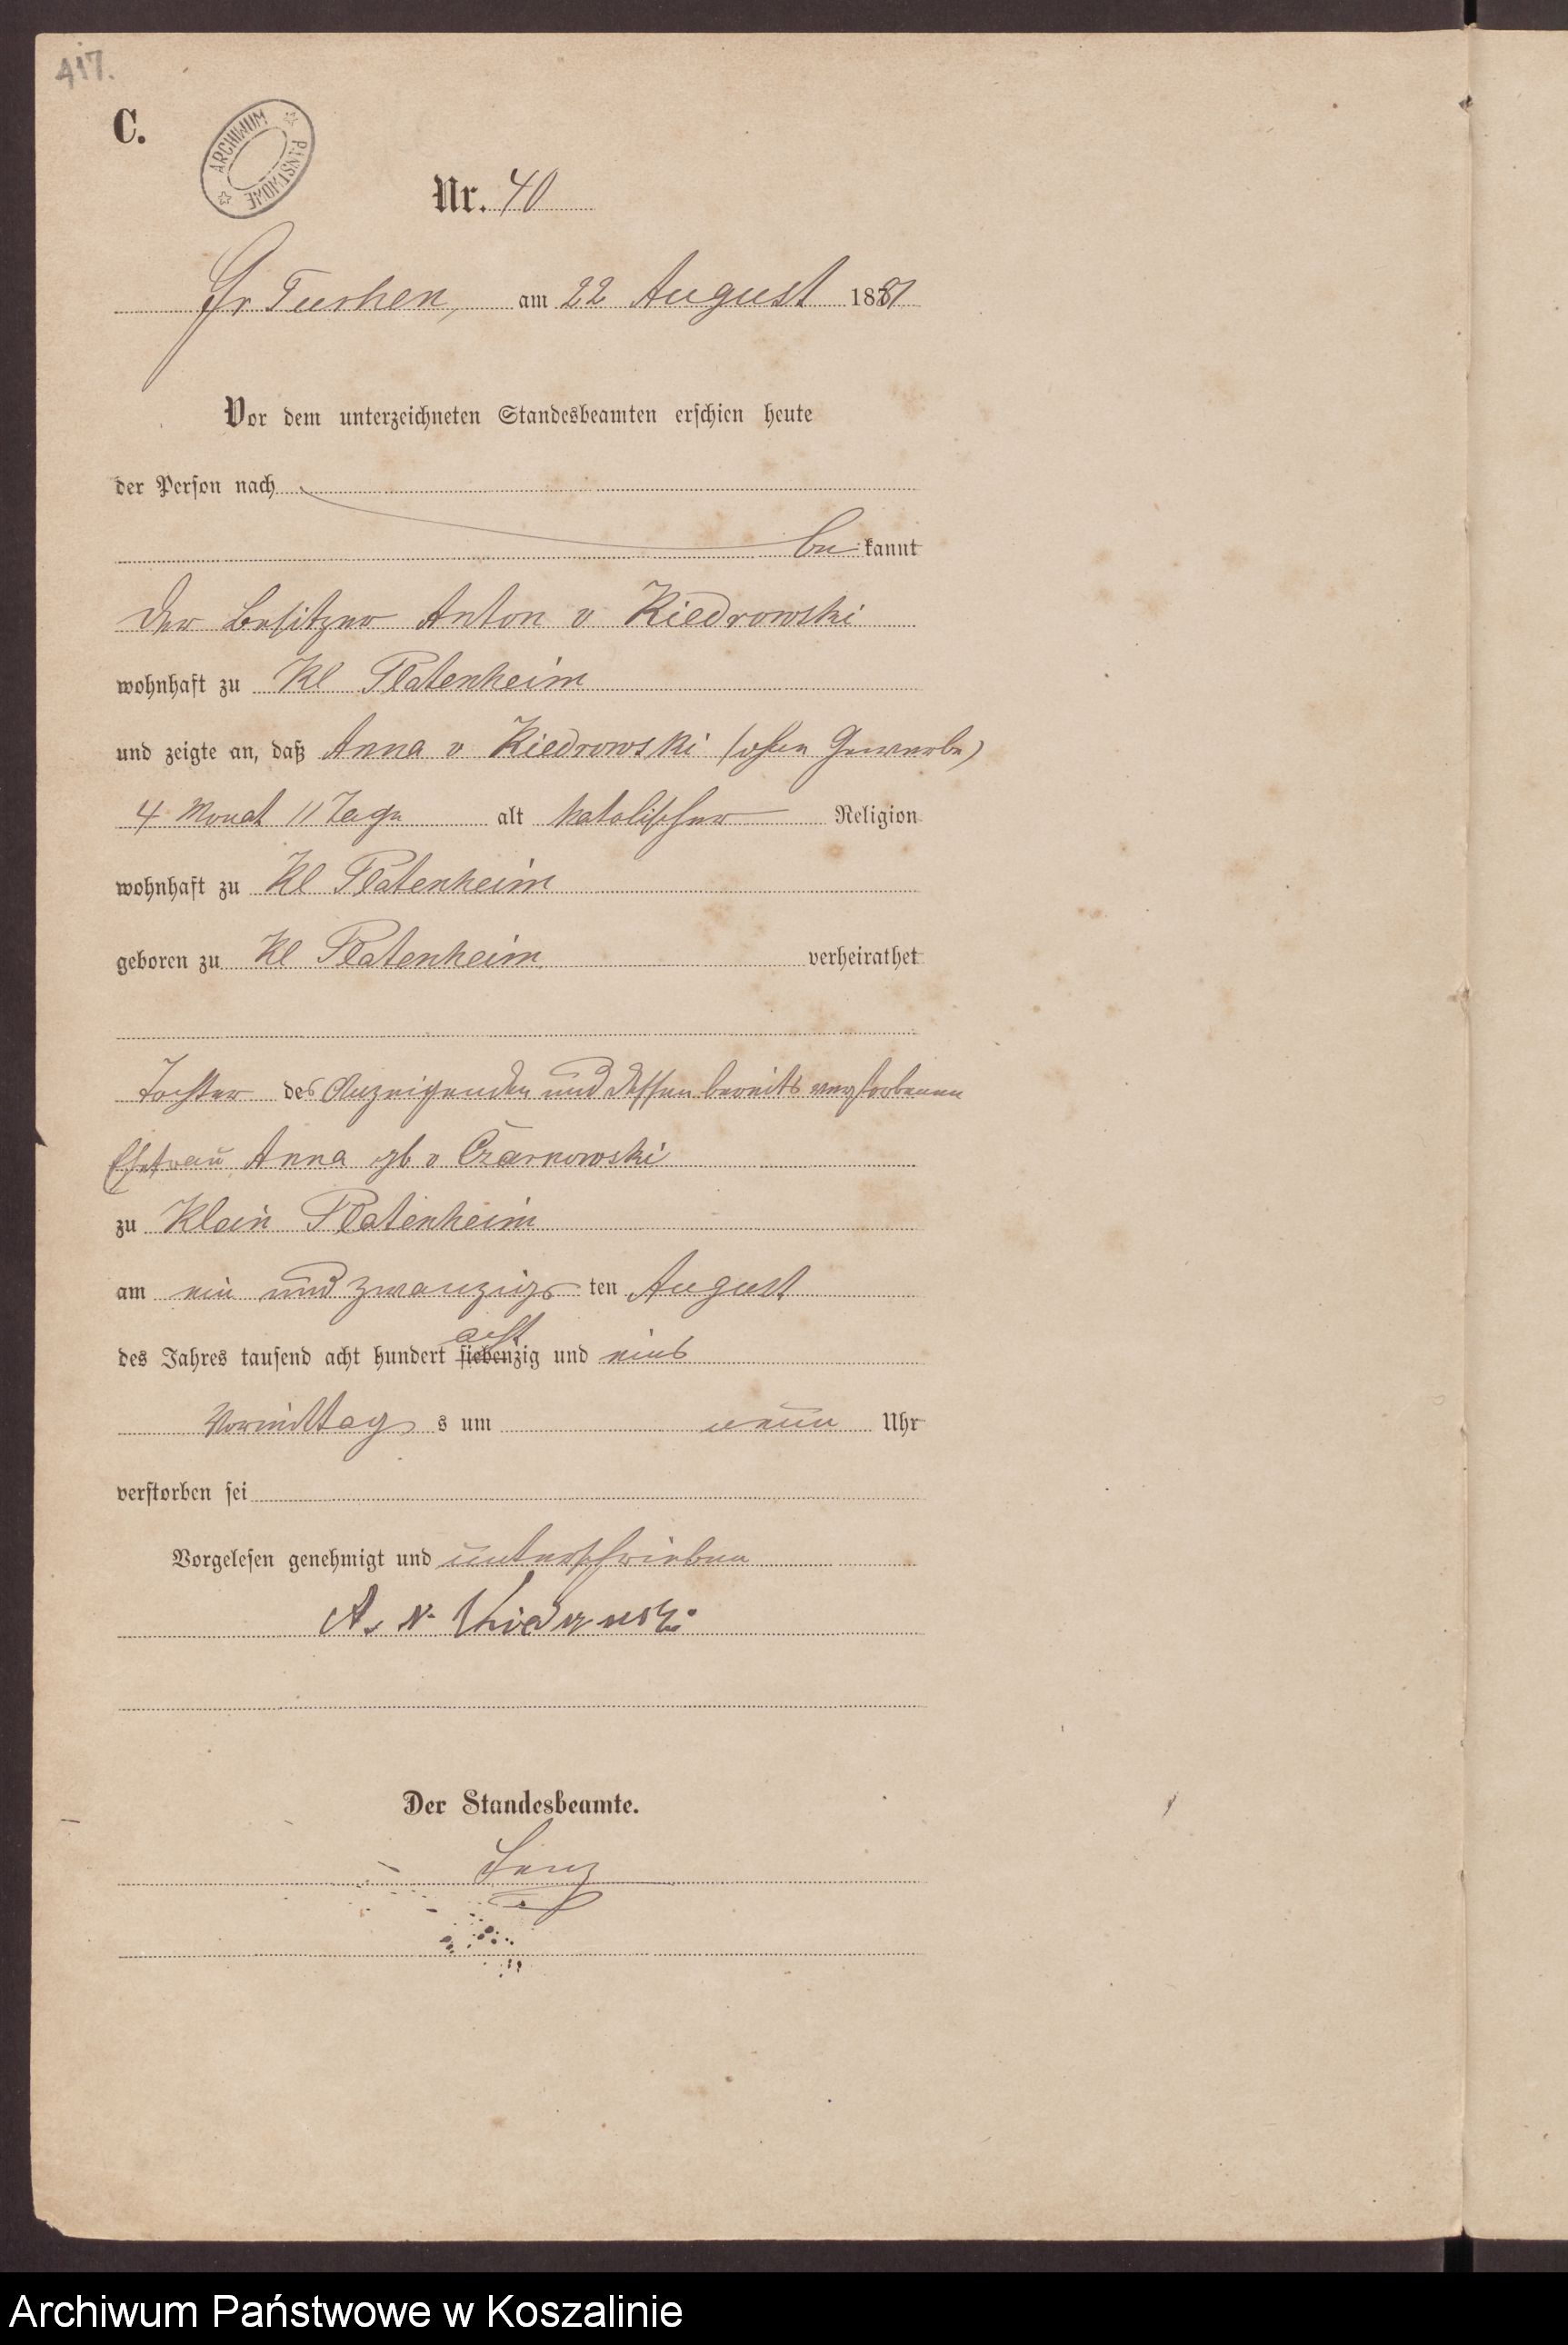 417.
C.
ARCHIWUM PAŃSTWOWE
Nr. 40
Gr Tuchen, am 22 August 1881
Vor dem unterzeichneten Standesbeamten erschien heute
der Person nach
be kannt
der Besitzer Anton v Kiedrowski
wohnhaft zu Kl Platenheim
und zeigte an, daß Anna v Kiedrowski (ohne Gewerbe)
4 Monat 11 Tage alt katolischer Religion
wohnhaft zu Kl Platenheim
geboren zu Kl Platenheim verheirathet
Tochter des Anzeigenden und dessen bereits verstorbenen
Ehefrau Anna gb v Czarnowski
zu Klein Platenheim
am ein und zwanzigs ten August
acht
des Jahres tausend acht hundert siebenzig und eins
Vormittag s um neun Uhr
verstorben sei
Vorgelesen genehmigt und unterschrieben
A. v. Kiedrowski
Der Standesbeamte.
Archiwum Państwowe w Koszalinie